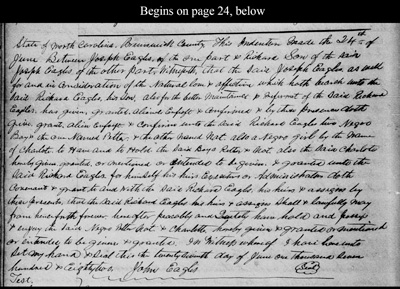 Begins on page 24, below
State of North Carolina, Brunswick County, This Indenture Made the 24th of
June Between Joseph Eagles, of the one part & Richard Son of the Said
Joseph Eagles of the other part, Witnesseth, that the Said Joseph Eagles as well
for and in Consideration of the Natural love & affection which he hath & beareth unto the
Said Richard Eagles, his Son, also for the better Maintainance & Preferment of the Said Richard
Eagles, has given, granted, Aliened Enfeoff & Confirmed & by these presents doth
give, grant, Alien Enfeoff & Confirm unto the Said Richard Eagles two Negro
Boys the one Named & the other Named Nat, also a Negro girl by the Name
of Charlott, to Have and to Hold the Said Boys & Nat, also the Said Charlott
hereby given granted, or mentioned or intended to be given & granted unto the
Said Richard Eagles for himself his heirs Executors or Administrators doth
Covenant & grant to and With the Said Richard Eagles, his heirs & assigns by
these presents, that the Said Richard Eagles his heirs & assigns Shall & lawfully may
from henceforth forever hereafter peaceably and Quietly have hold and possess
& enjoy the Said Negroes Nat & Charlotte, hereby given & granted or mentioned
or intended to be given & granted. In Witness whereof I have hereunto
Set my hand & Seal this the twenty ninth day of June one thousand Seven
hundred & Eighty two. John Eagles Seal
Test.